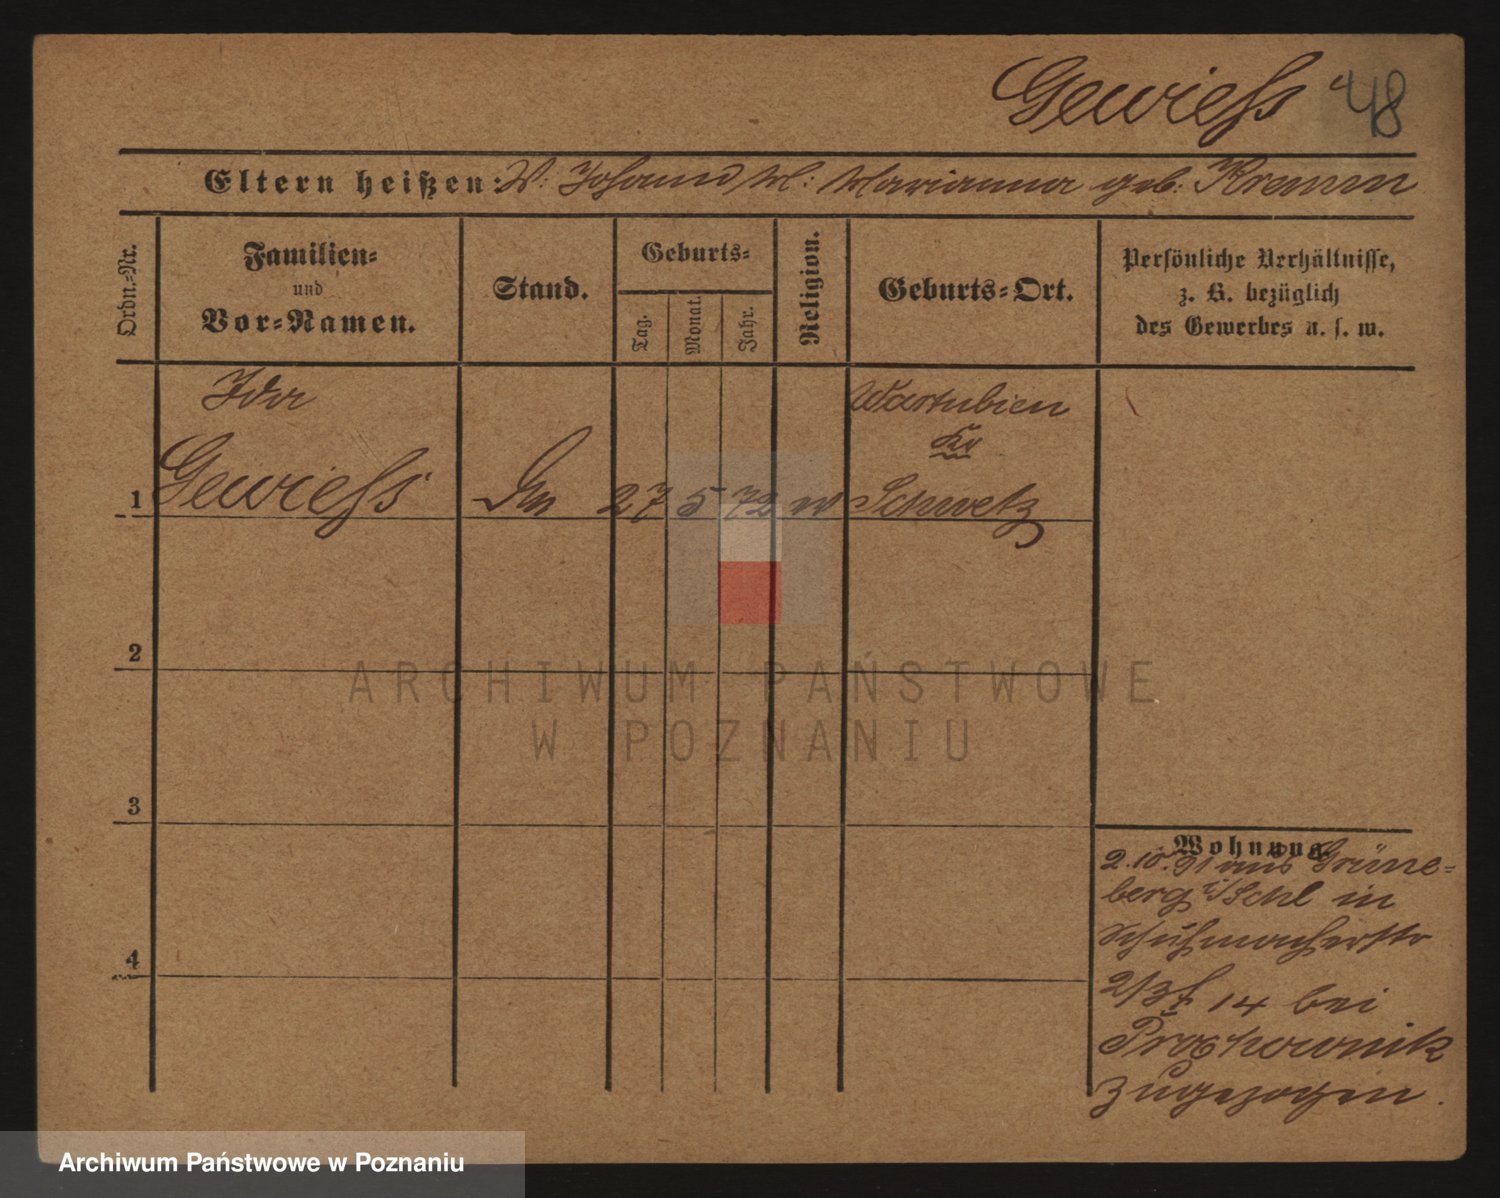 Gewiess 48
Eltern heißen: V: Johann M: Marianna geb: Kremin
Ordn.-Nr.
Familien-
und
Vor-Namen.
Stand.
Geburts-
Tag.
Monat.
Jahr.
Religion.
Geburts-Ort.
Persönliche Verhältnisse,
z. B. bezüglich
des Gewerbes u. s. w.
Ida
Gewiess
1
27 5 72
Wartubien
Kr
Schwetz
2
3
4
Wohnung.
2.10.91 aus Grüne-
berg i/Schl in
Schuhmacherstr
14 bei
zugezogen.
ARCHIWUM PAŃSTWOWE
W POZNANIU
Archiwum Państwowe w Poznaniu